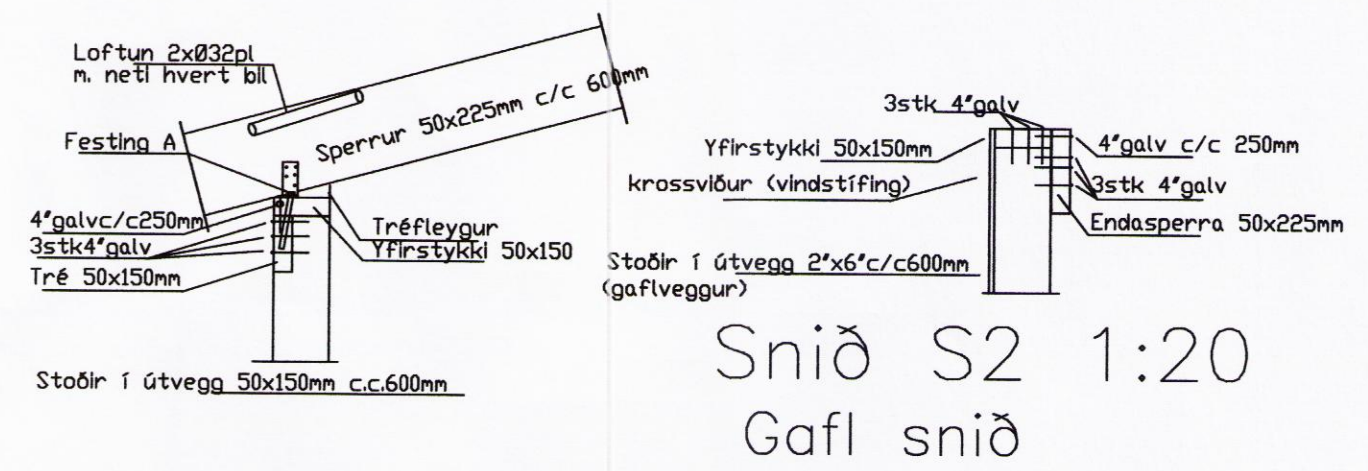 Loftun 2xØ32pl
m. neti hvert bil
Sperrur 50x225mm c/c 600mm
Festing A
4"galvc/c250mm
3stk4"galv
Tré 50x150mm
Tréfleygur
Yfirstykki 50x150
Stoðir í útvegg 50x150mm c.c.600mm
3stk 4"galv
Yfirstykki 50x150mm
4"galv c/c 250mm
krossviður (vindstífing)
3stk 4"galv
Endasperra 50x225mm
Stoðir í útvegg 2"x6"c/c600mm
(gaflveggur)
Snið S2 1:20
Gafl snið